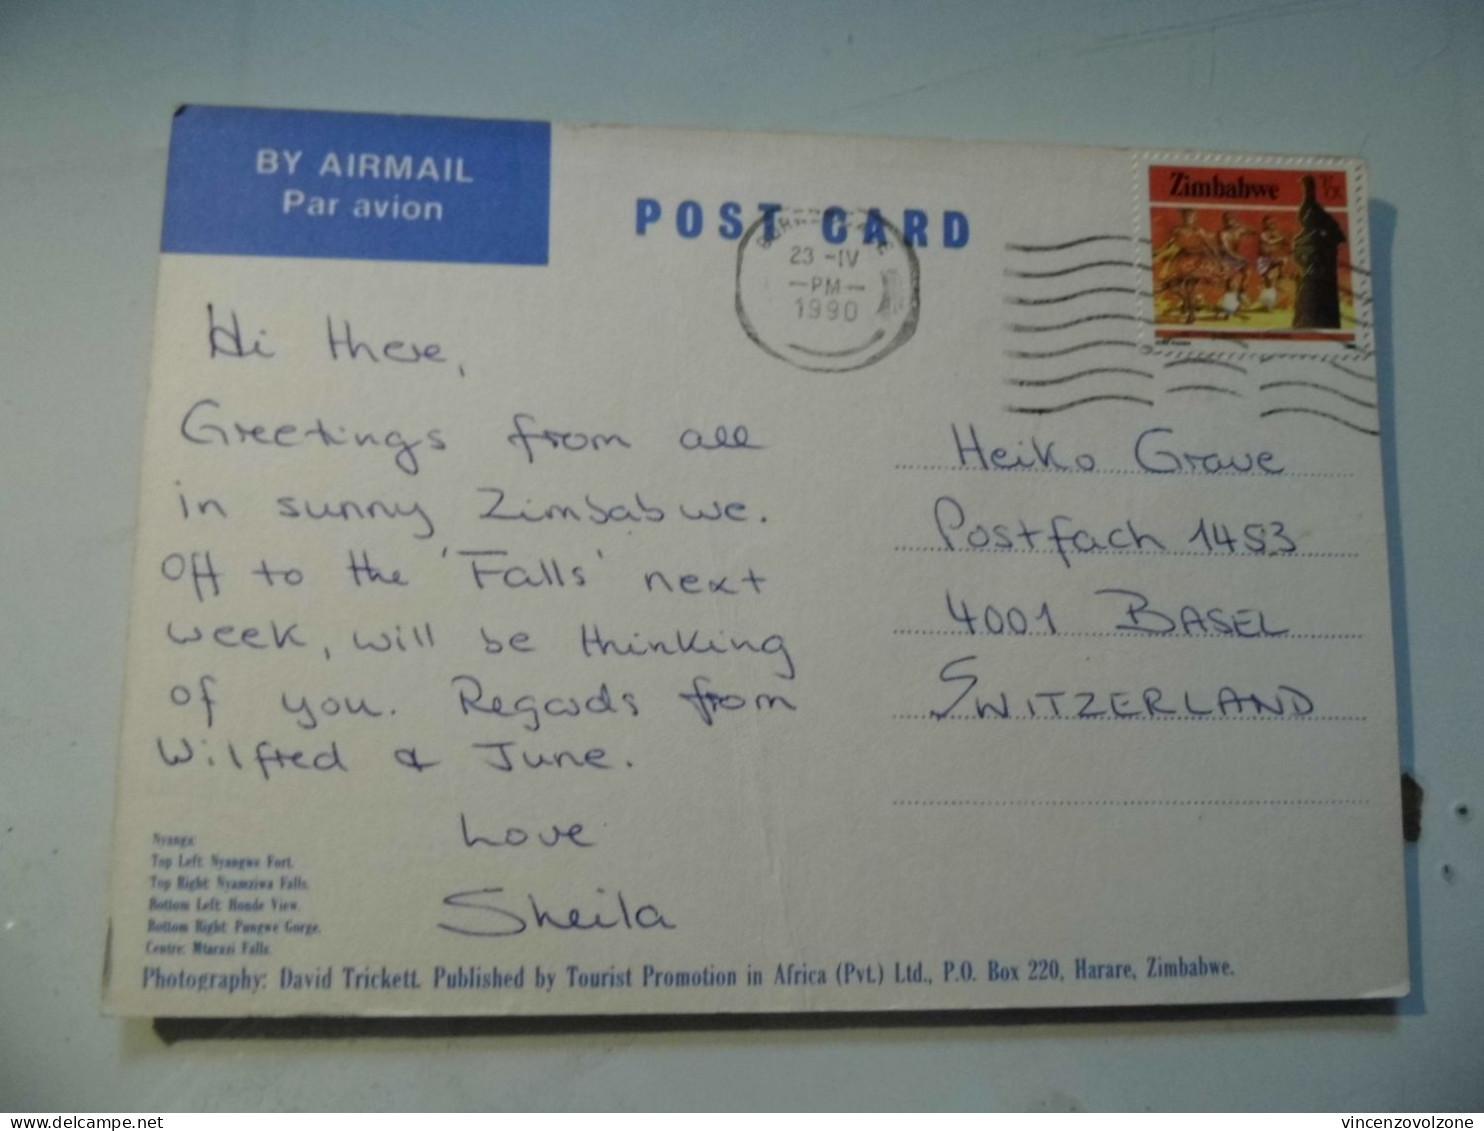 BY AIRMAIL
Par avion
POST CARD
23 -IV
-PM-
1990
Zimbabwe
Hi there,
Greetings from all
in sunny Zimbabwe.
Off to the 'Falls' next
week, will be thinking
of you. Regards from
Wilfred & June.
Love
Sheila
Heiko Grave
Postfach 1453
4001 BASEL
SWITZERLAND
Nyanga:
Top Left: Nyangwe Fort.
Top Right: Nyamziwa Falls.
Bottom Left: Honde View.
Bottom Right: Pungwe Gorge.
Centre: Mtarazi Falls.
Photography: David Trickett. Published by Tourist Promotion in Africa (Pvt.) Ltd., P.O. Box 220, Harare, Zimbabwe.
vincenzovolzone